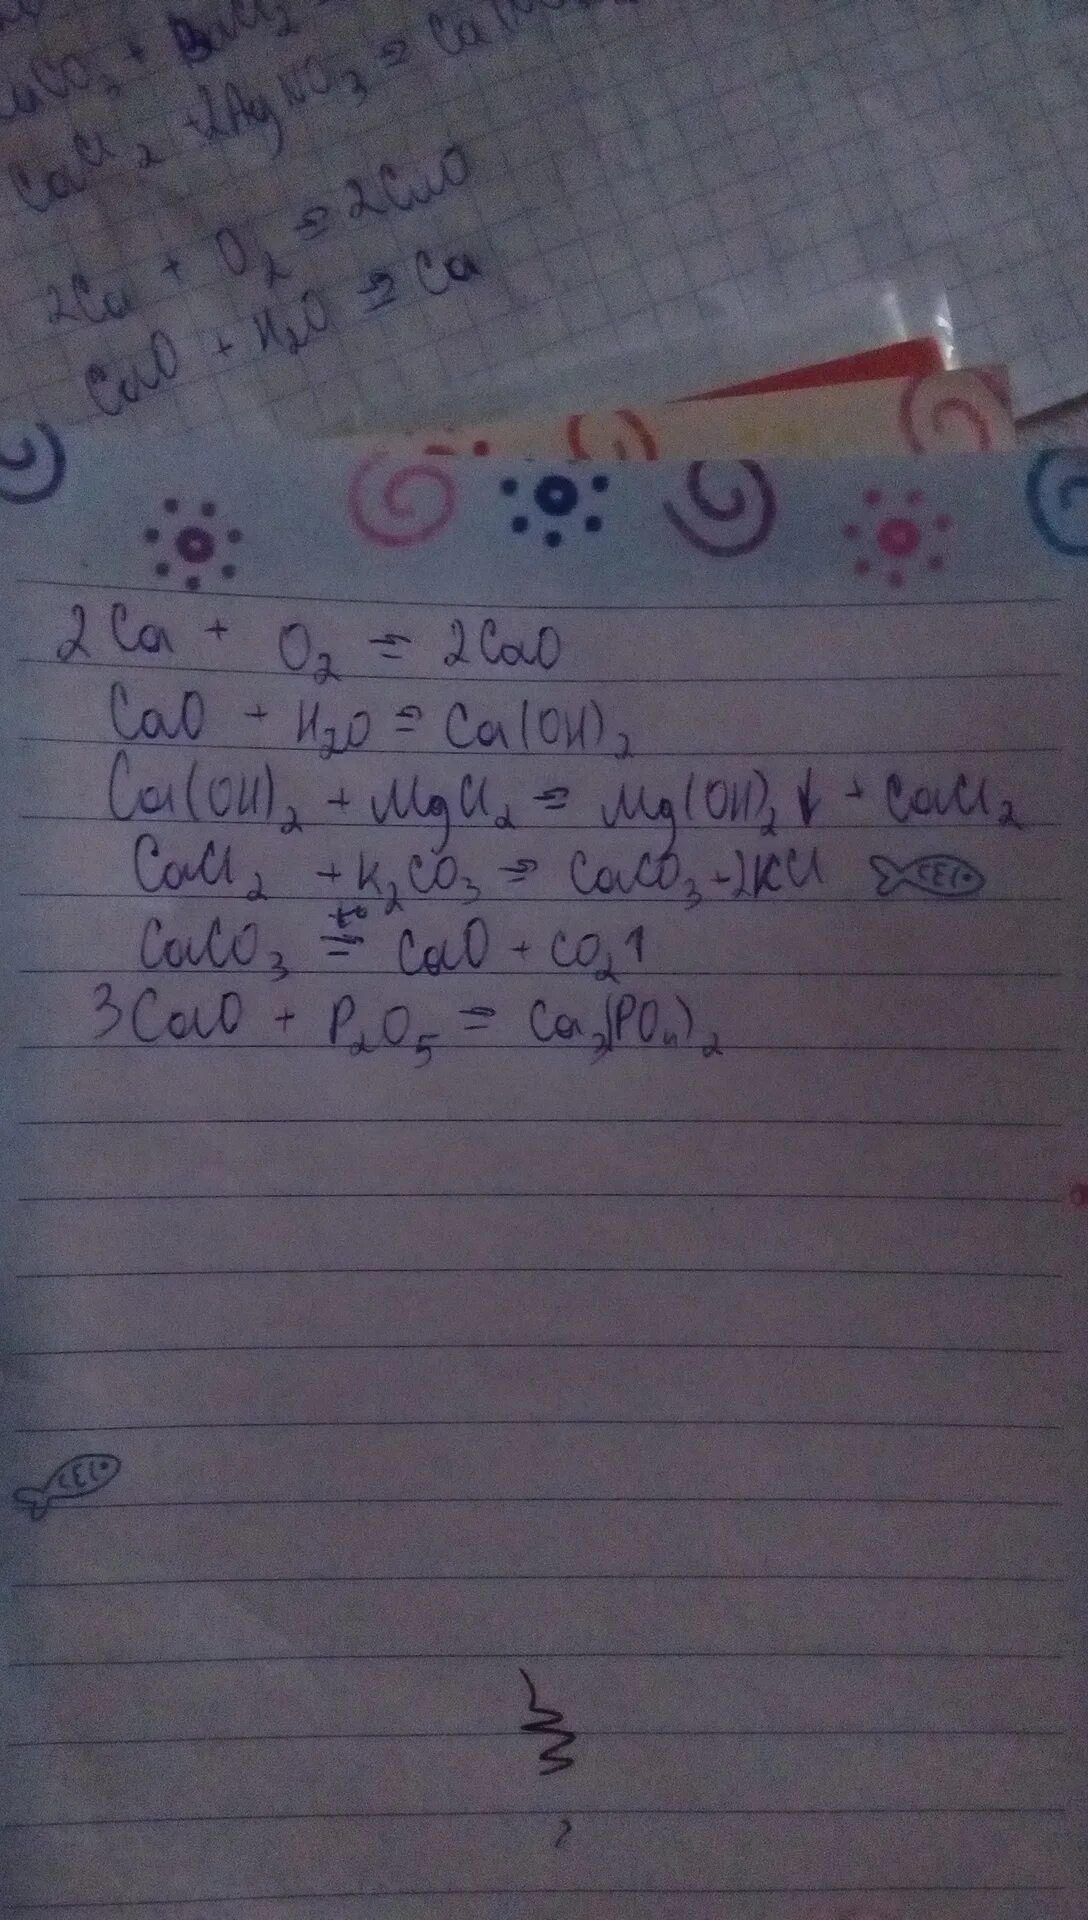 CO₃ + BaCl₂
CaCl₂ + 2AgNO₃ = Ca(NO
2Ca + O₂ = 2CaO
CaO + H₂O = Ca
2Ca + O₂ = 2CaO
CaO + H₂O = Ca(OH)₂
Ca(OH)₂ + MgCl₂ = Mg(OH)₂↓ + CaCl₂
CaCl₂ + K₂CO₃ = CaCO₃ + 2KCl
CaCO₃ =t°= CaO + CO₂↑
3CaO + P₂O₅ = Ca₃(PO₄)₂